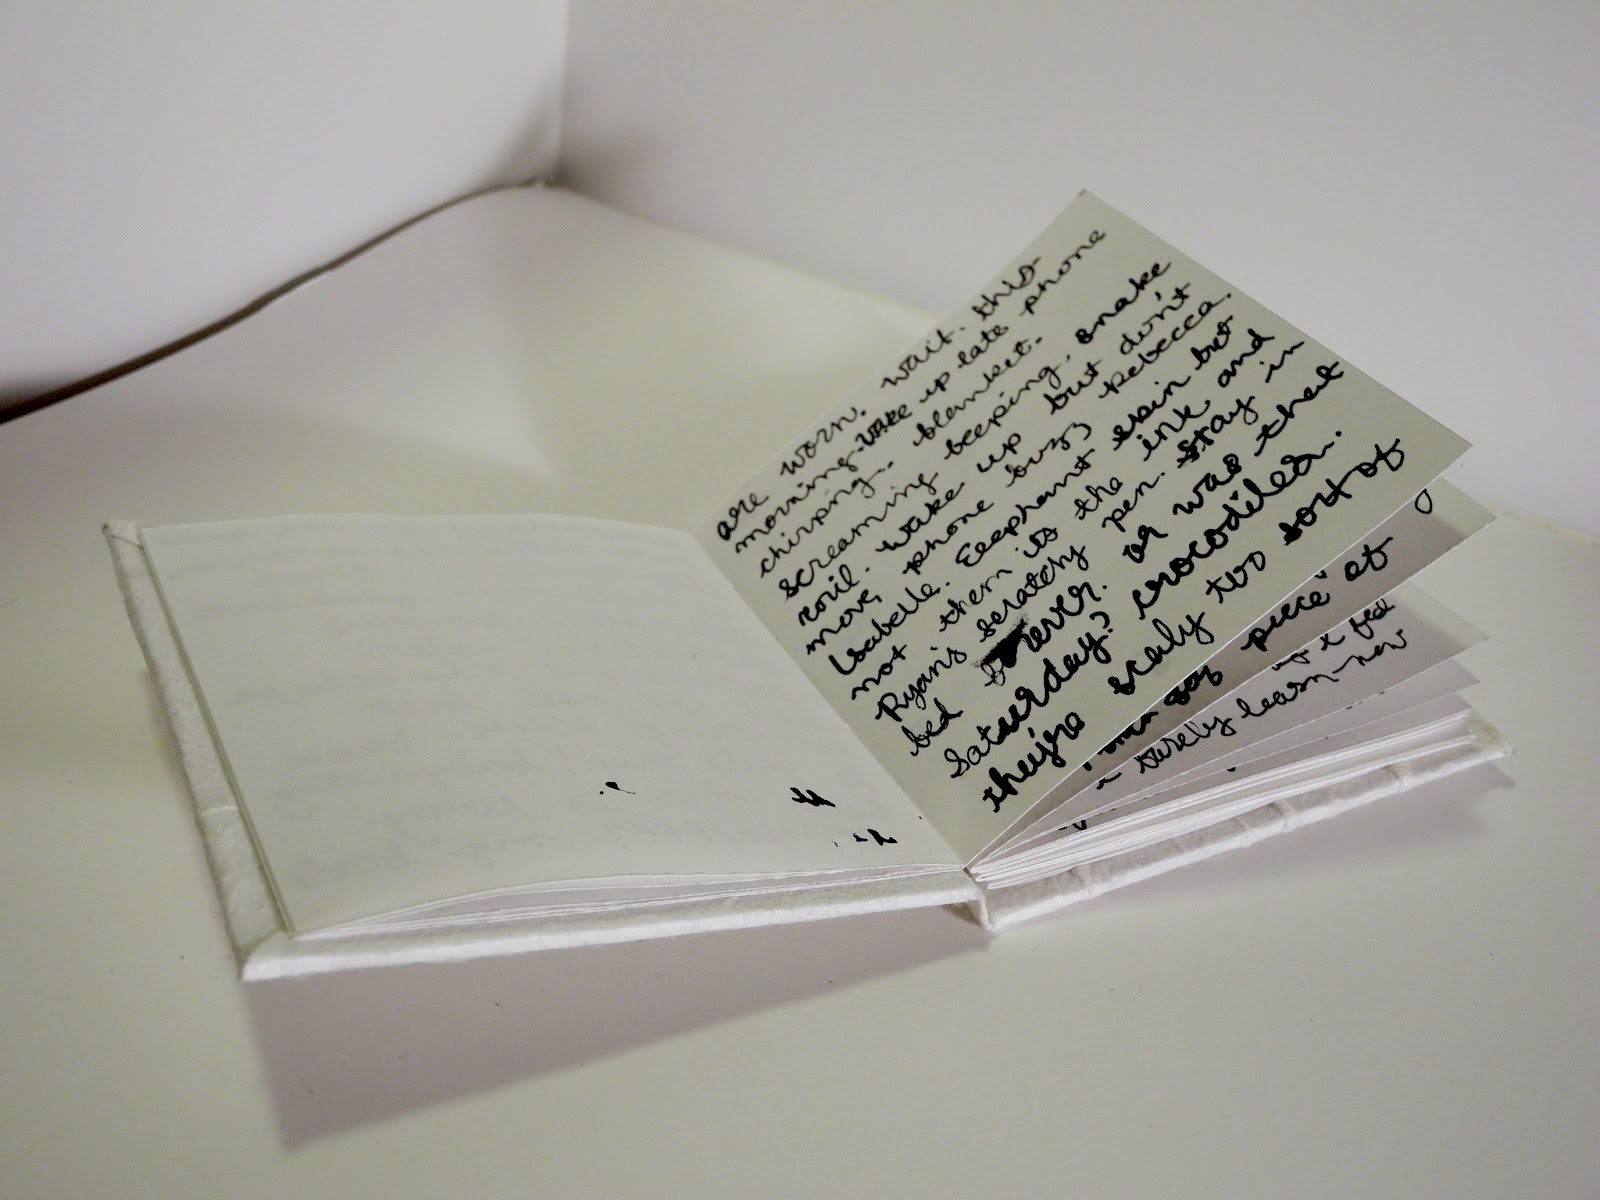 are worn. wait. this-
morning. wake up late phone
chirping.. blanket.
screaming beeping, snake
coil. wake up but don't
move, phone buzz Rebecca.
Isabelle. Eelephant skin but
not them its the ink and
Ryan's scratchy pen. stay in
bed forever. or was that
Saturday? crocodiles..
they're scaly too sort of
piece of
I fed
surely learn-now